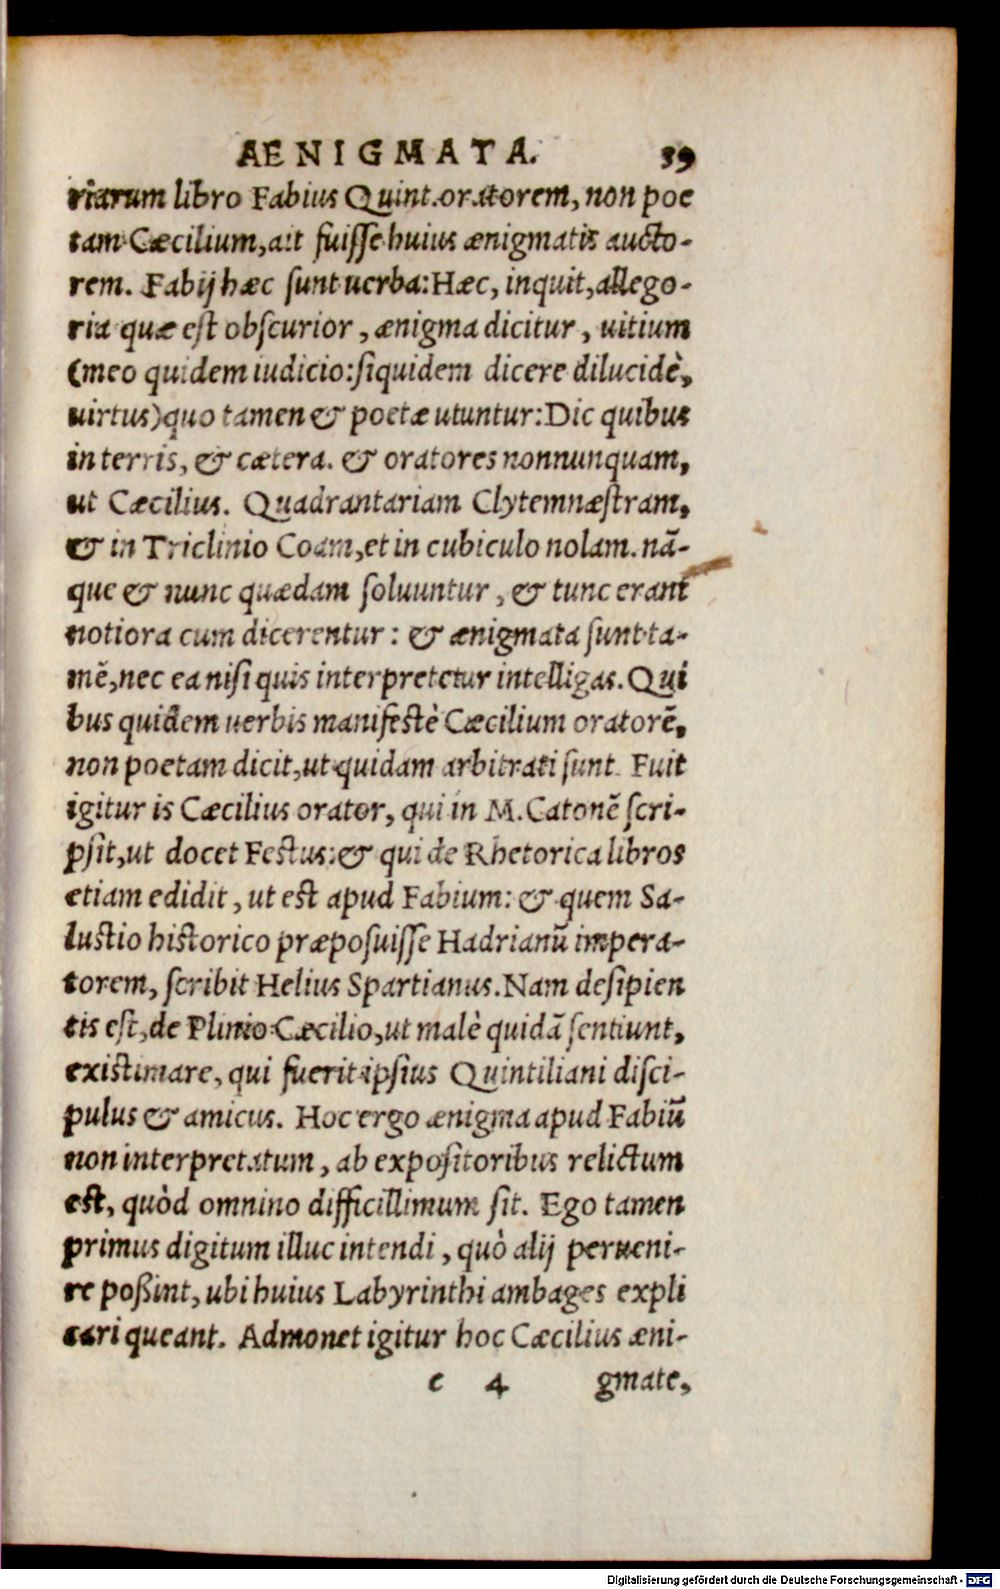 AENIGMATA. 39
riarum libro Fabius Quint.oratorem, non poe
tam Cæcilium, ait fuisse huius ænigmatis aucto-
rem. Fabij hæc sunt uerba: Hæc, inquit, allego-
ria quæ est obscurior, ænigma dicitur, uitium
(meo quidem iudicio: siquidem dicere dilucidè,
uirtus) quo tamen & poetæ utuntur: Dic quibus
in terris, & cætera. & oratores nonnunquam,
ut Cæcilius. Quadrantariam Clytemnæstram,
& in Triclinio Coam, et in cubiculo nolam. nā-
que & nunc quædam soluuntur, & tunc erant
notiora cum dicerentur: & ænigmata sunt ta-
mē, nec ea nisi quis interpretetur intelligas. Qui
bus quidem uerbis manifestè Cæcilium oratorē,
non poetam dicit, ut quidam arbitrati sunt. Fuit
igitur is Cæcilius orator, qui in M. Catonē scri-
psit, ut docet Festus: & qui de Rhetorica libros
etiam edidit, ut est apud Fabium: & quem Sa-
lustio historico præposuisse Hadrianū impera-
torem, scribit Helius Spartianus. Nam desipien
tis est, de Plinio Cæcilio, ut malè quidā sentiunt,
existimare, qui fuerit ipsius Quintiliani disci-
pulus & amicus. Hoc ergo ænigma apud Fabiū
non interpretatum, ab expositoribus relictum
est, quòd omnino difficillimum sit. Ego tamen
primus digitum illuc intendi, quò alij perueni-
re poßint, ubi huius Labyrinthi ambages expli
cari queant. Admonet igitur hoc Cæcilius æni-
e 4 gmate,
Digitalisierung gefördert durch die Deutsche Forschungsgemeinschaft - DFG